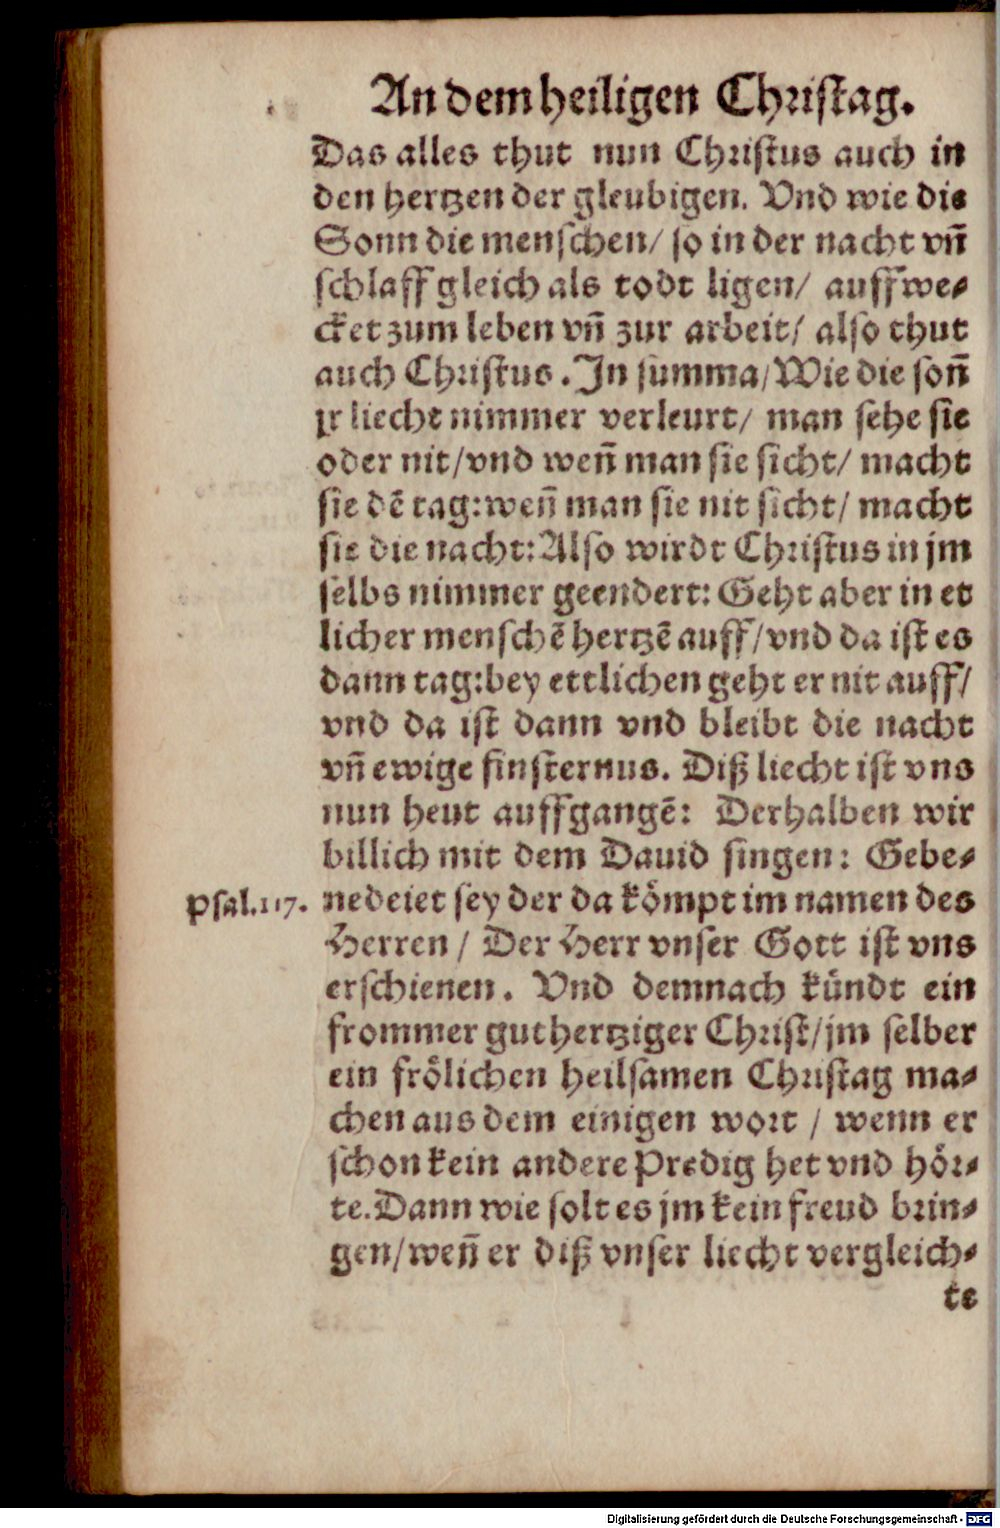 An dem heiligen Christag.
Das alles thut nun Christus auch in
den hertzen der gleubigen. Vnd wie die
Sonn die menschen/ so in der nacht vñ
schlaff gleich als todt ligen/ auffwe-
cket zum leben vñ zur arbeit/ also thut
auch Christus. In summa/ Wie die soñ
jr liecht nimmer verleurt/ man sehe sie
oder nit/ vnd weñ man sie sicht/ macht
sie dẽ tag: weñ man sie nit sicht/ macht
sie die nacht: Also wirdt Christus in jm
selbs nimmer geendert: Geht aber in et
licher menschẽ hertzẽ auff/ vnd da ist es
dann tag: bey ettlichen geht er nit auff/
vnd da ist dann vnd bleibt die nacht
vñ ewige finsternus. Diß liecht ist vns
nun heut auffgangẽ: Derhalben wir
billich mit dem Dauid singen: Gebe-
Psal.117. nedeiet sey der da kömpt im namen des
Herren/ Der Herr vnser Gott ist vns
erschienen. Vnd demnach kündt ein
frommer guthertziger Christ/ jm selber
ein frölichen heilsamen Christag ma-
chen aus dem einigen wort/ wenn er
schon kein andere Predig het vnd hör-
te. Dann wie solt es jm kein freud brin-
gen/ weñ er diß vnser liecht vergleich-
te
Digitalisierung gefördert durch die Deutsche Forschungsgemeinschaft - DFG